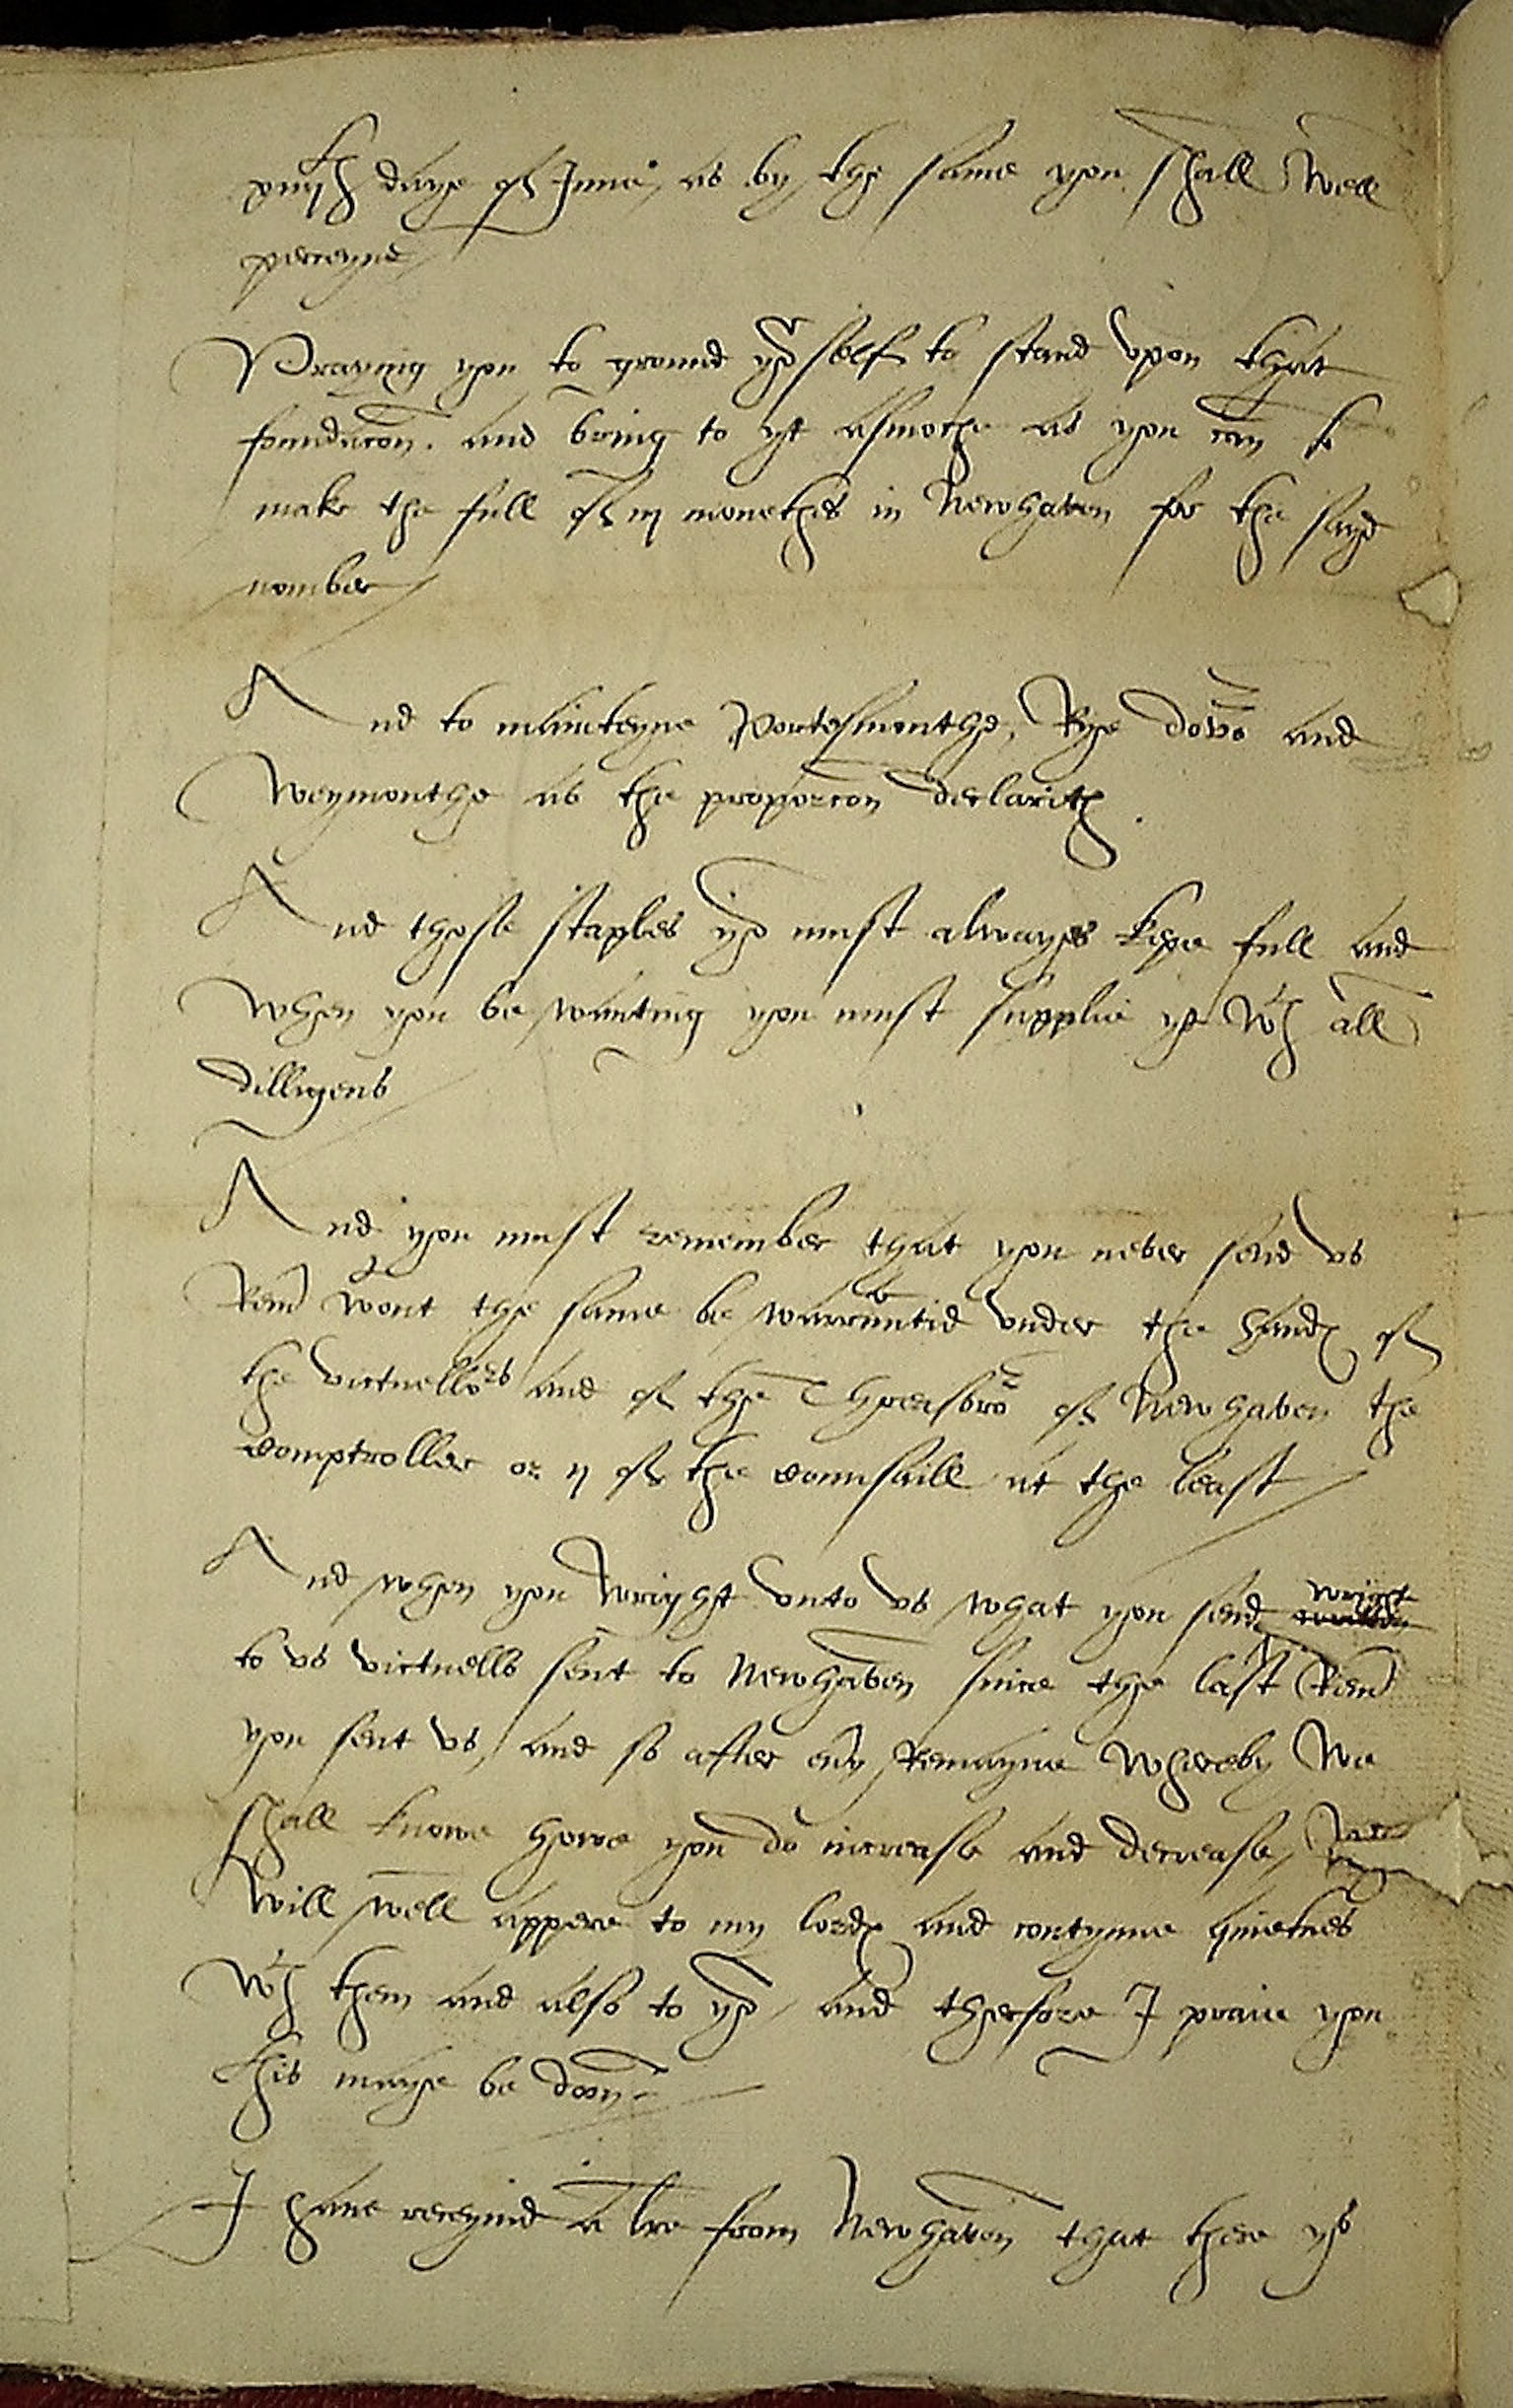 xviijth daye of June, as by the same you shall well
perceyve
Praying you to ground yor self to stand vpon that
foundacon. and bring to yt asmoche as you can to
make the full of iij monethes in Newhaven for the sayd
nomber
And to mainteyne Portesmouthe, Rye Dovor and
Weymouthe as the proporcon declarith.
And those staples yow must alwayes kepe full and
when you be wanting you must supplie yt wth all
dilligens
And you must remember that you never send vs
Rem wtout the same be warrantid vnder the handes of
the victuellors and of the Threasoror of Newhaven the
comptroller or ij of the counsaill at the least
And when you wryght vnto vs what you send wryght
to vs victuells sent to Newhaven since the last Rem
you sent vs, and so after eny Remayne whereby we
shall knowe howe you do increase and decrease,
will well appere to my lordes and contynue quietnes
wth them and also to yow, and therfore I praie you
this maye be doon
I have receyvid a lre from Newhaven that there ys